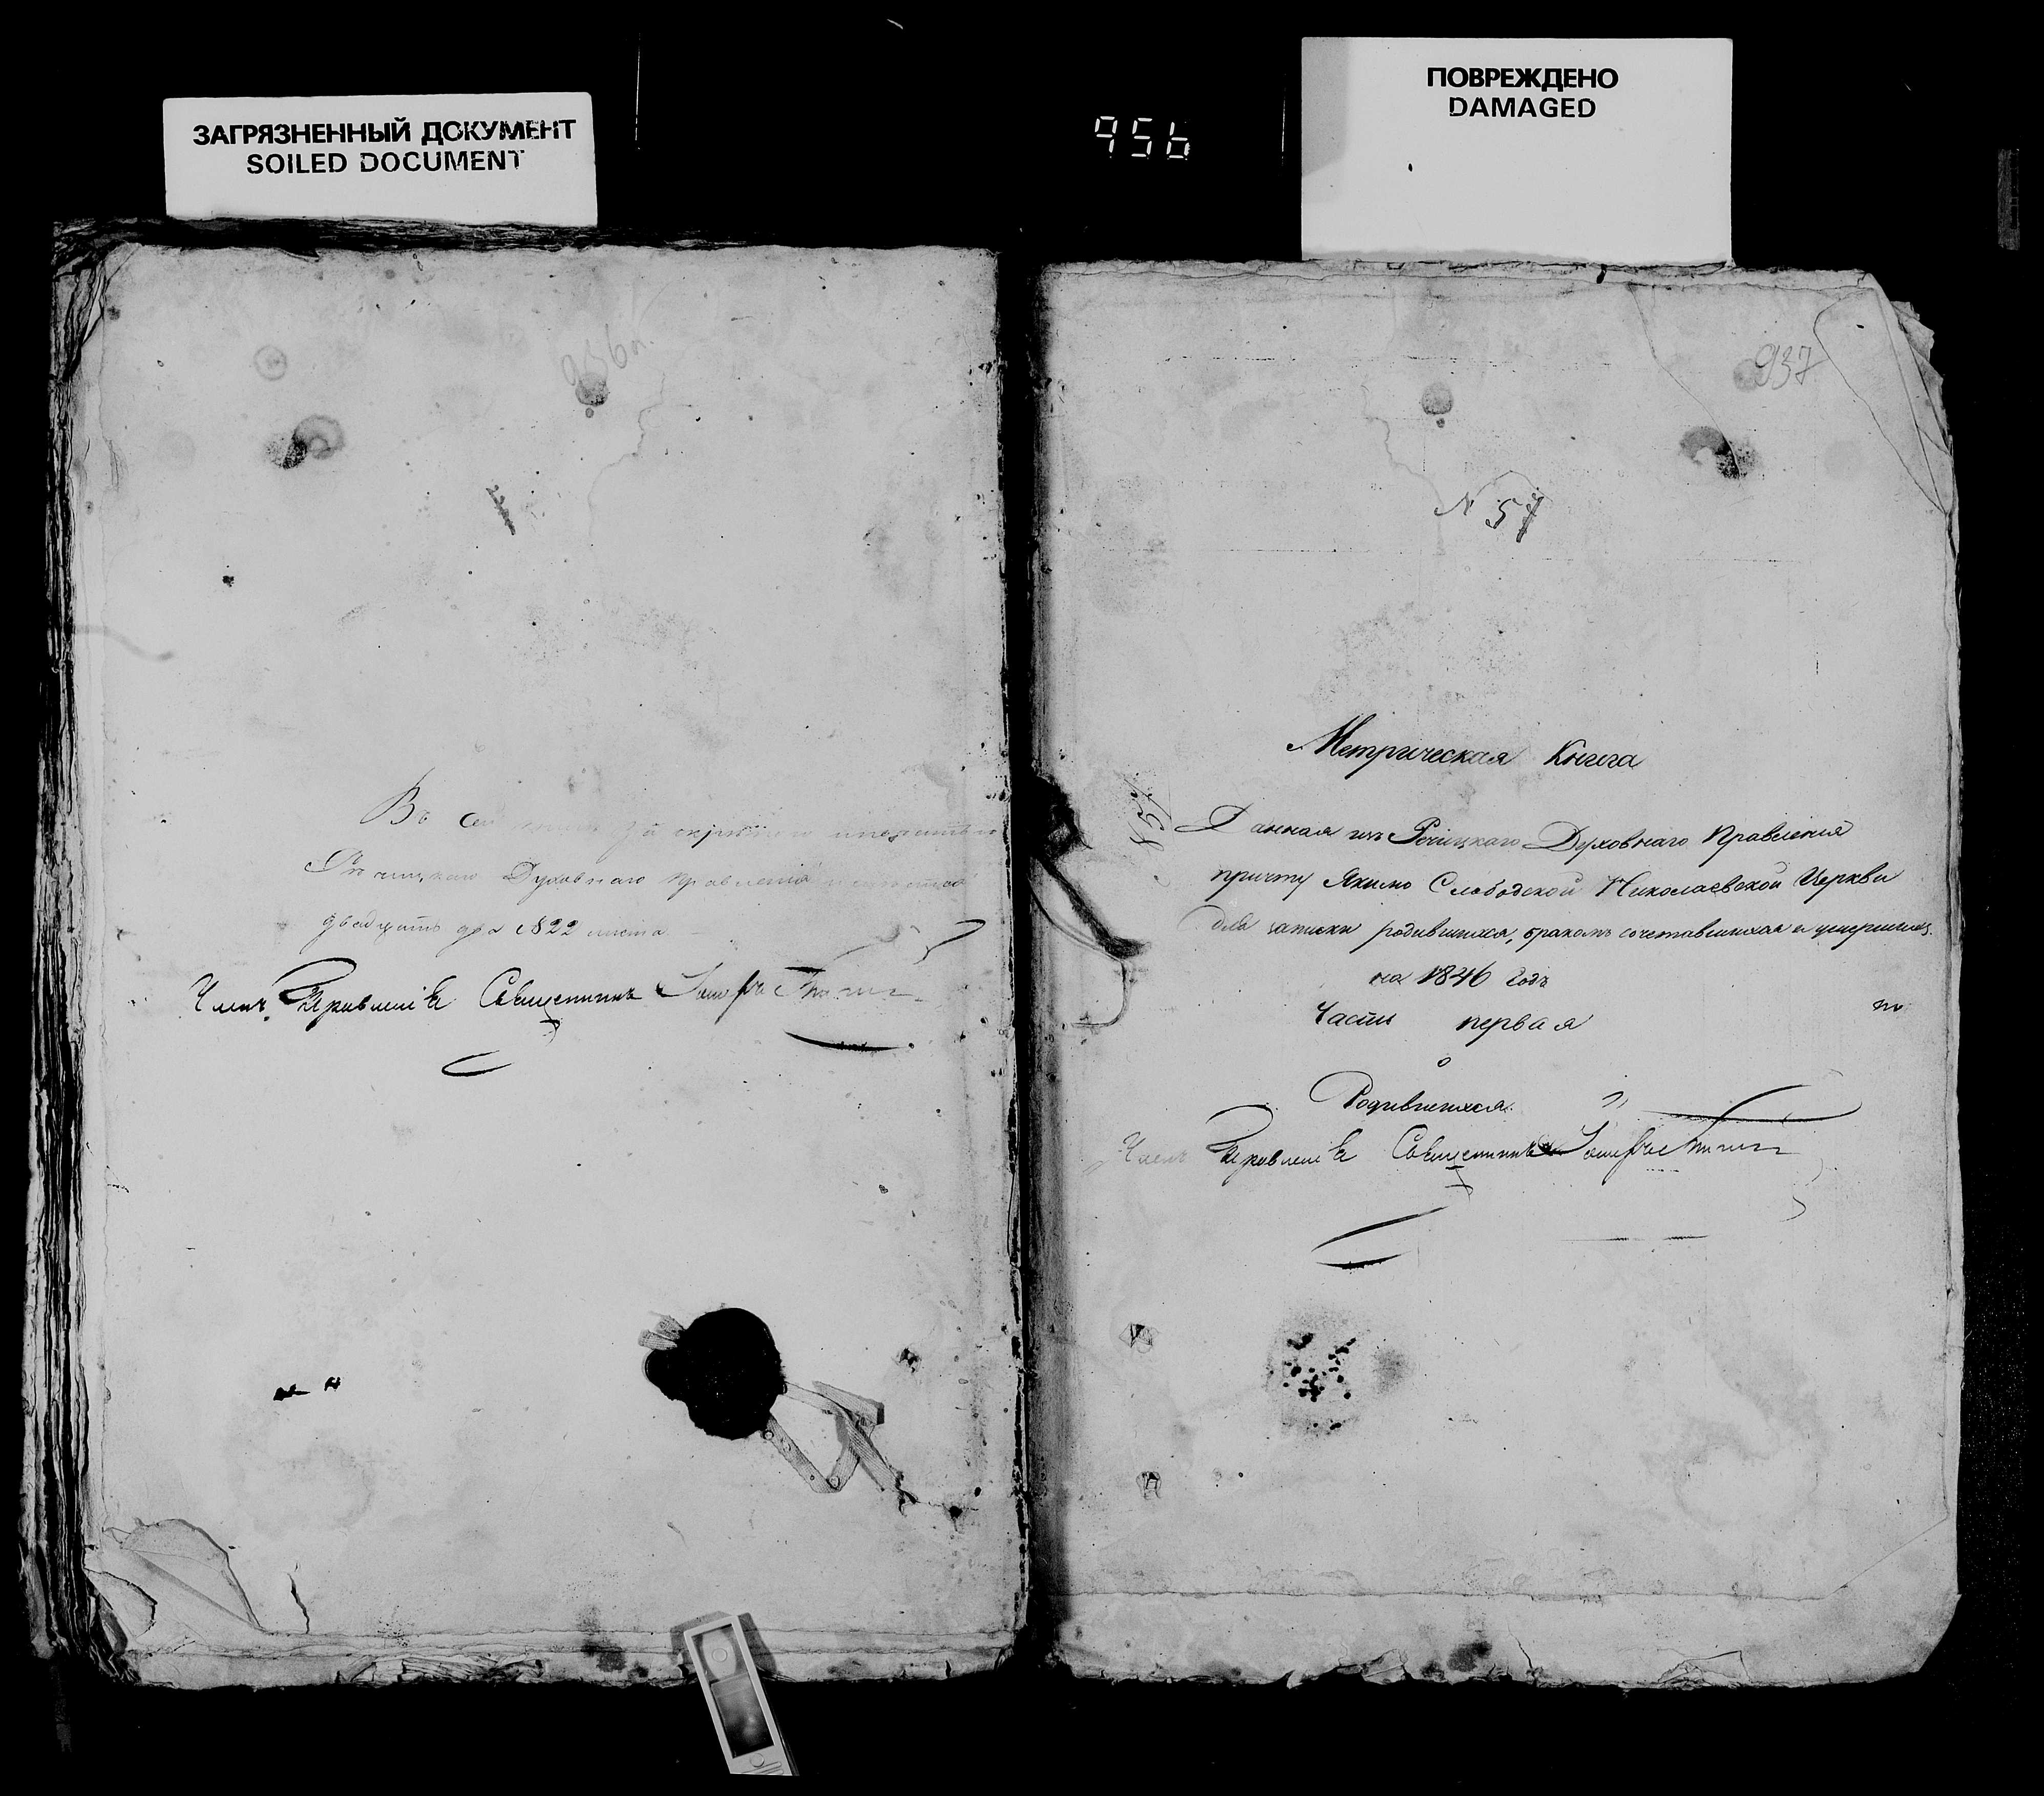 ЗАГРЯЗНЕННЫЙ ДОКУМЕНТ
SOILED DOCUMENT
956
ПОВРЕЖДЕНО
DAMAGED
936
Въ сей
Речицкаго Духовнаго Правленія
двадцать два №22 листа
Членъ Правленія Священникъ
937
N 57
Метрическая Книга
Данная изъ Речицкаго Духовнаго Правленія
причту Якимо Слободской Николаевской Церкви
для записки родившихся, бракомъ сочетавшихся и умершихъ
на 1846 Годъ
Часть первая
о
Родившихся.
Членъ Правленія Священникъ